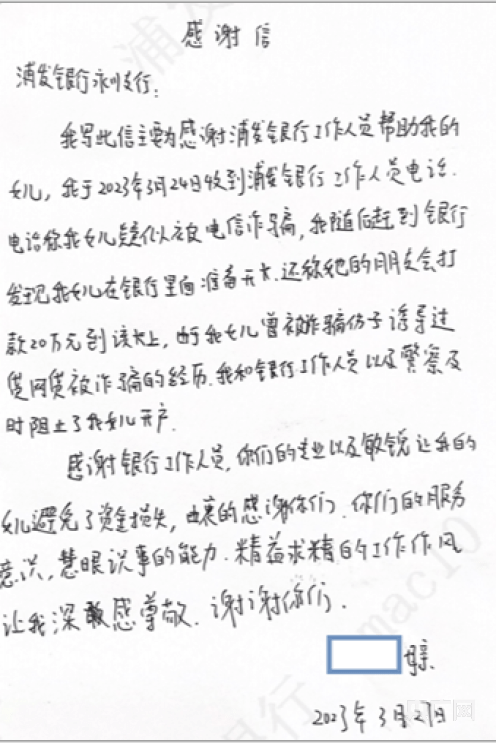 感谢信
浦发银行永川支行：
我写此信主要为感谢浦发银行工作人员帮助我的
女儿，我于2023年3月24日收到浦发银行工作人员电话.
电话称我女儿疑似被电信诈骗，我随后赶到银行
发现我女儿在银行里面准备开卡.还称她的朋友会打
款20万元到该卡上，由于我女儿曾被诈骗份子诱导过
贷网贷被诈骗的经历.我和银行工作人员以及警察及
时阻止了我女儿开户.
感谢银行工作人员，你们的专业以及敏锐让我的
女儿避免了资金损失，由衷的感谢你们.你们的服务
意识，慧眼识事的能力.精益求精的工作作风
让我深感尊敬.谢谢你们.
母亲
2023年3月27日